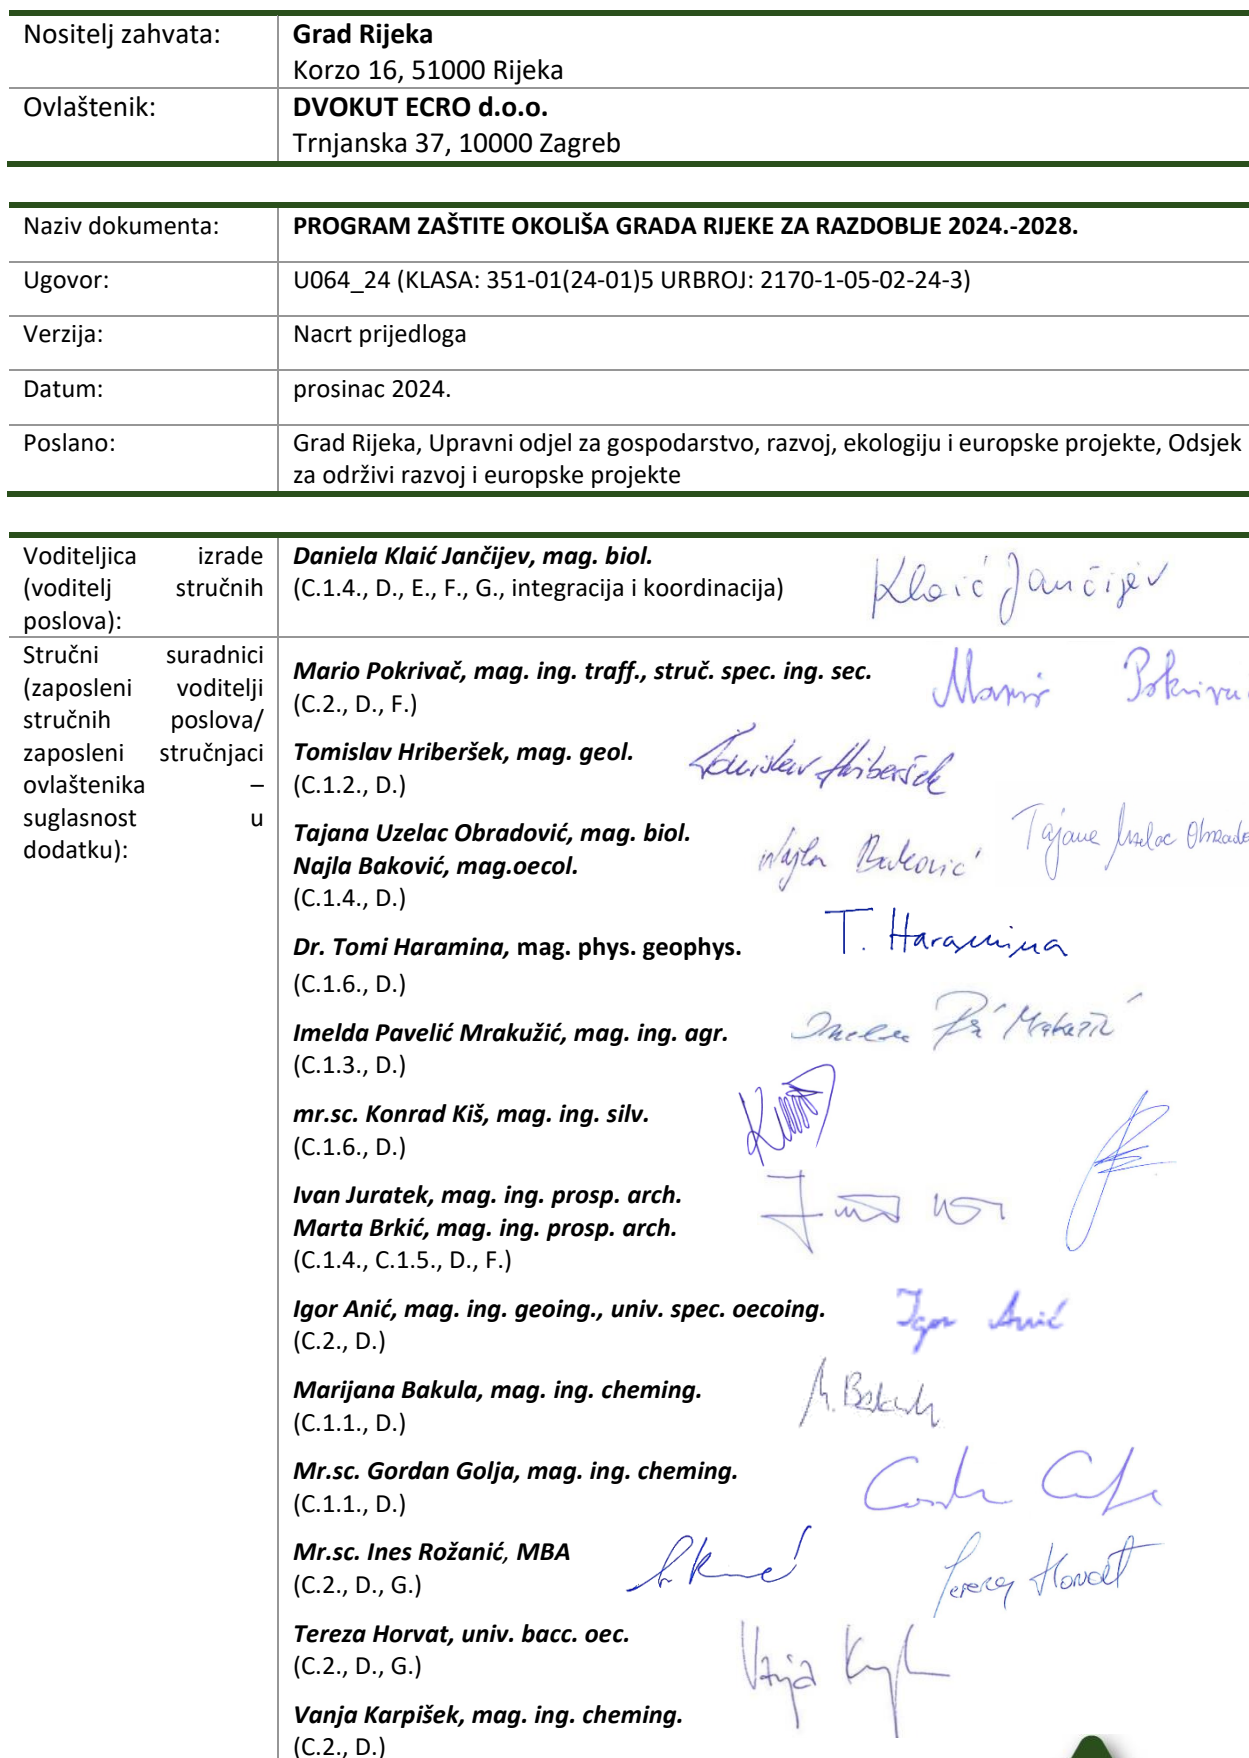 Nositelj zahvata: Grad Rijeka
Korzo 16, 51000 Rijeka
Ovlaštenik: DVOKUT ECRO d.o.o.
Trnjanska 37, 10000 Zagreb
Naziv dokumenta: PROGRAM ZAŠTITE OKOLIŠA GRADA RIJEKE ZA RAZDOBLJE 2024.-2028.
Ugovor: U064_24 (KLASA: 351-01(24-01)5 URBROJ: 2170-1-05-02-24-3)
Verzija: Nacrt prijedloga
Datum: prosinac 2024.
Poslano: Grad Rijeka, Upravni odjel za gospodarstvo, razvoj, ekologiju i europske projekte, Odsjek
za održivi razvoj i europske projekte
Voditeljica izrade
(voditelj stručnih
poslova):
Daniela Klaić Jančijev, mag. biol.
(C.1.4., D., E., F., G., integracija i koordinacija)
Klaić Jančijev
Stručni suradnici
(zaposleni voditelji
stručnih poslova/
zaposleni stručnjaci
ovlaštenika –
suglasnost u
dodatku):
Mario Pokrivač, mag. ing. traff., struč. spec. ing. sec.
(C.2., D., F.)
Mario
Tomislav Hriberšek, mag. geol.
(C.1.2., D.)
Tomislav Hriberšek
Tajana Uzelac Obradović, mag. biol.
Najla Baković, mag.oecol.
(C.1.4., D.)
Najla Baković
Tajana Uzelac
Dr. Tomi Haramina, mag. phys. geophys.
(C.1.6., D.)
T. Haramina
Imelda Pavelić Mrakužić, mag. ing. agr.
(C.1.3., D.)
Imelda
mr.sc. Konrad Kiš, mag. ing. silv.
(C.1.6., D.)
Ivan Juratek, mag. ing. prosp. arch.
Marta Brkić, mag. ing. prosp. arch.
(C.1.4., C.1.5., D., F.)
Igor Anić, mag. ing. geoing., univ. spec. oecoing.
(C.2., D.)
Igor Anić
Marijana Bakula, mag. ing. cheming.
(C.1.1., D.)
M. Bakula
Mr.sc. Gordan Golja, mag. ing. cheming.
(C.1.1., D.)
Mr.sc. Ines Rožanić, MBA
(C.2., D., G.)
Tereza Horvat
Tereza Horvat, univ. bacc. oec.
(C.2., D., G.)
Vanja
Vanja Karpišek, mag. ing. cheming.
(C.2., D.)